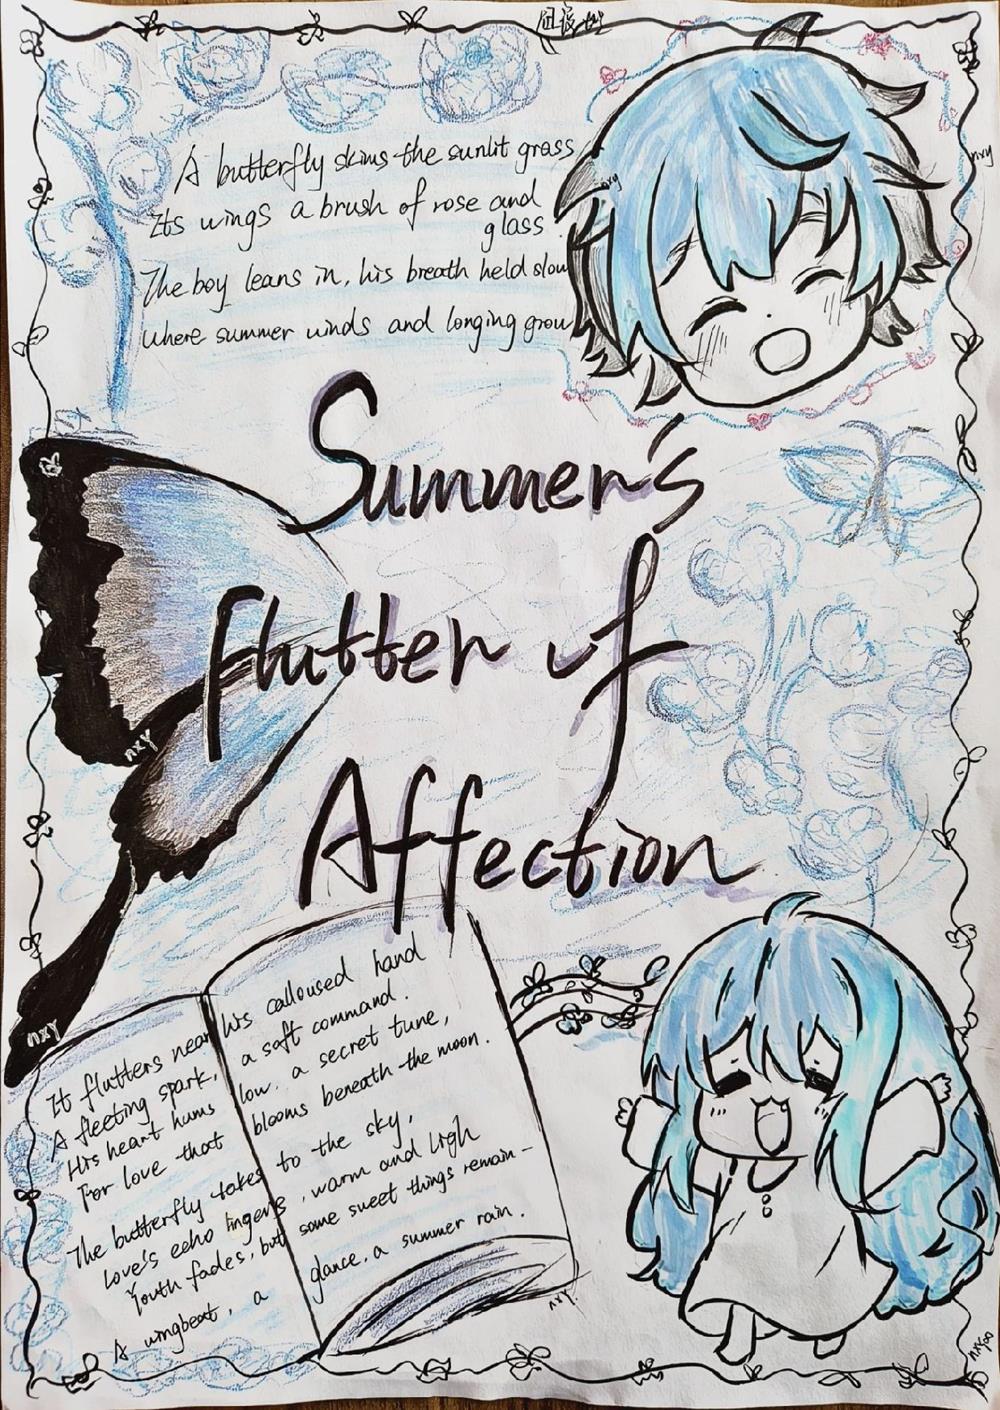 A butterfly skims the sunlit grass
Its wings a brush of rose and
glass.
The boy leans in, his breath held slow
where summer winds and longing grow
Summer's
flutter of
Affection
It flutters near his calloused hand
A fleeting spark, a soft command.
His heart hums low, a secret tune,
For love that blooms beneath the moon.
The butterfly takes to the sky,
Love's echo lingers, warm and ligh
Youth fades, but some sweet things remain-
A wingbeat, a glance, a summer rain.
nxy
nxy
nxy
nxy
nxy